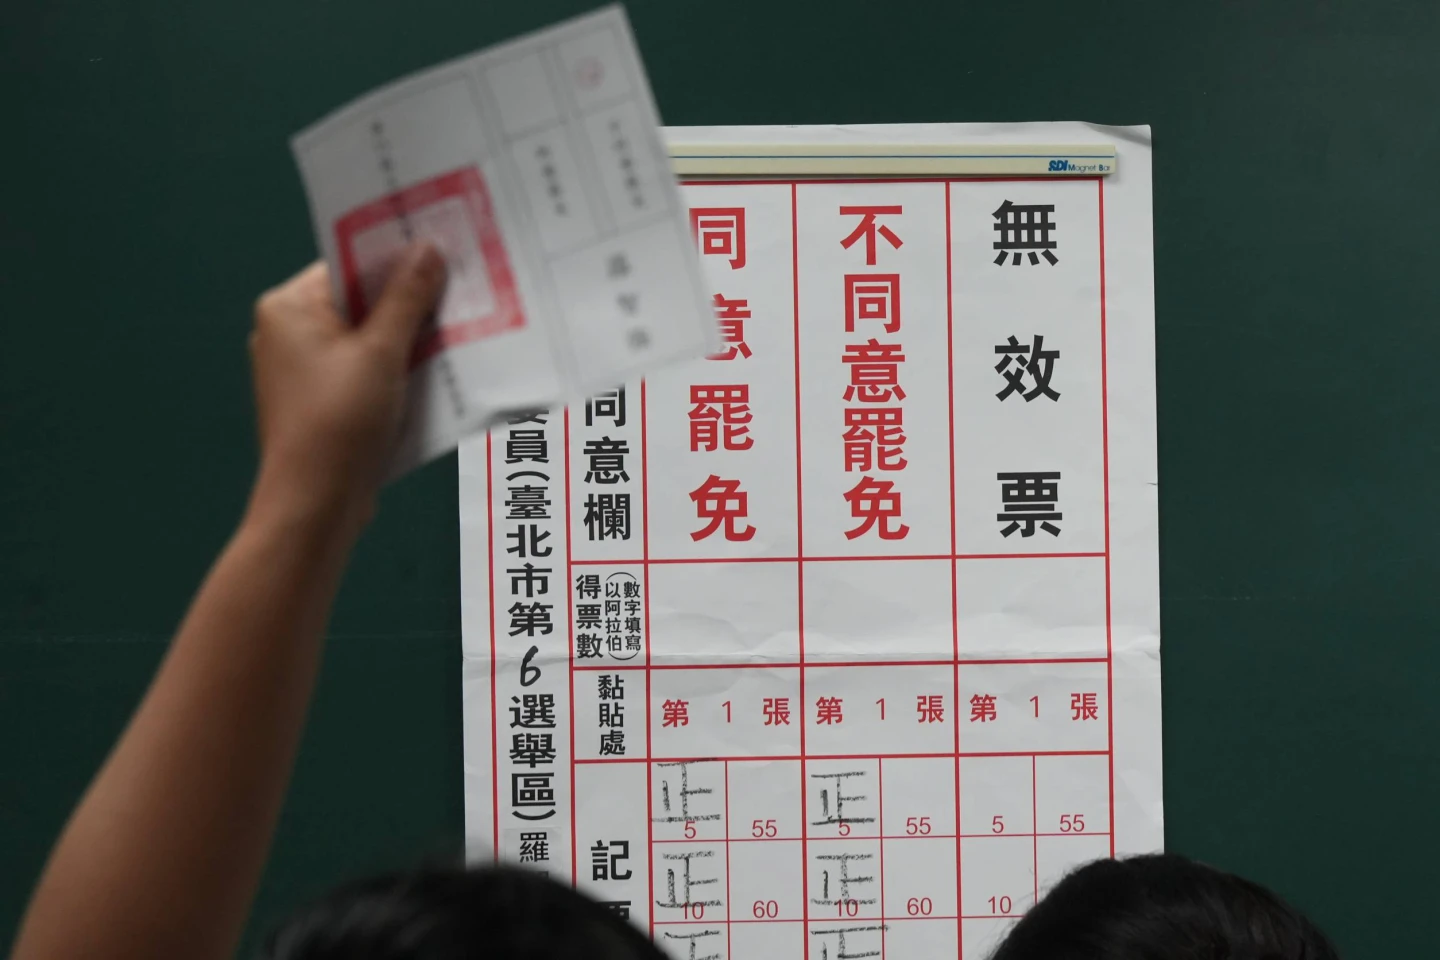 SDI Magnet Bar
同意罷免
不同意罷免
無效票
同意欄
委員(臺北市第6選舉區)羅
得票數
(以阿拉伯數字填寫)
黏貼處
第 1 張
第 1 張
第 1 張
記票
正 5 55
正 5 55
5 55
正 10 60
正 10 60
10
正
正